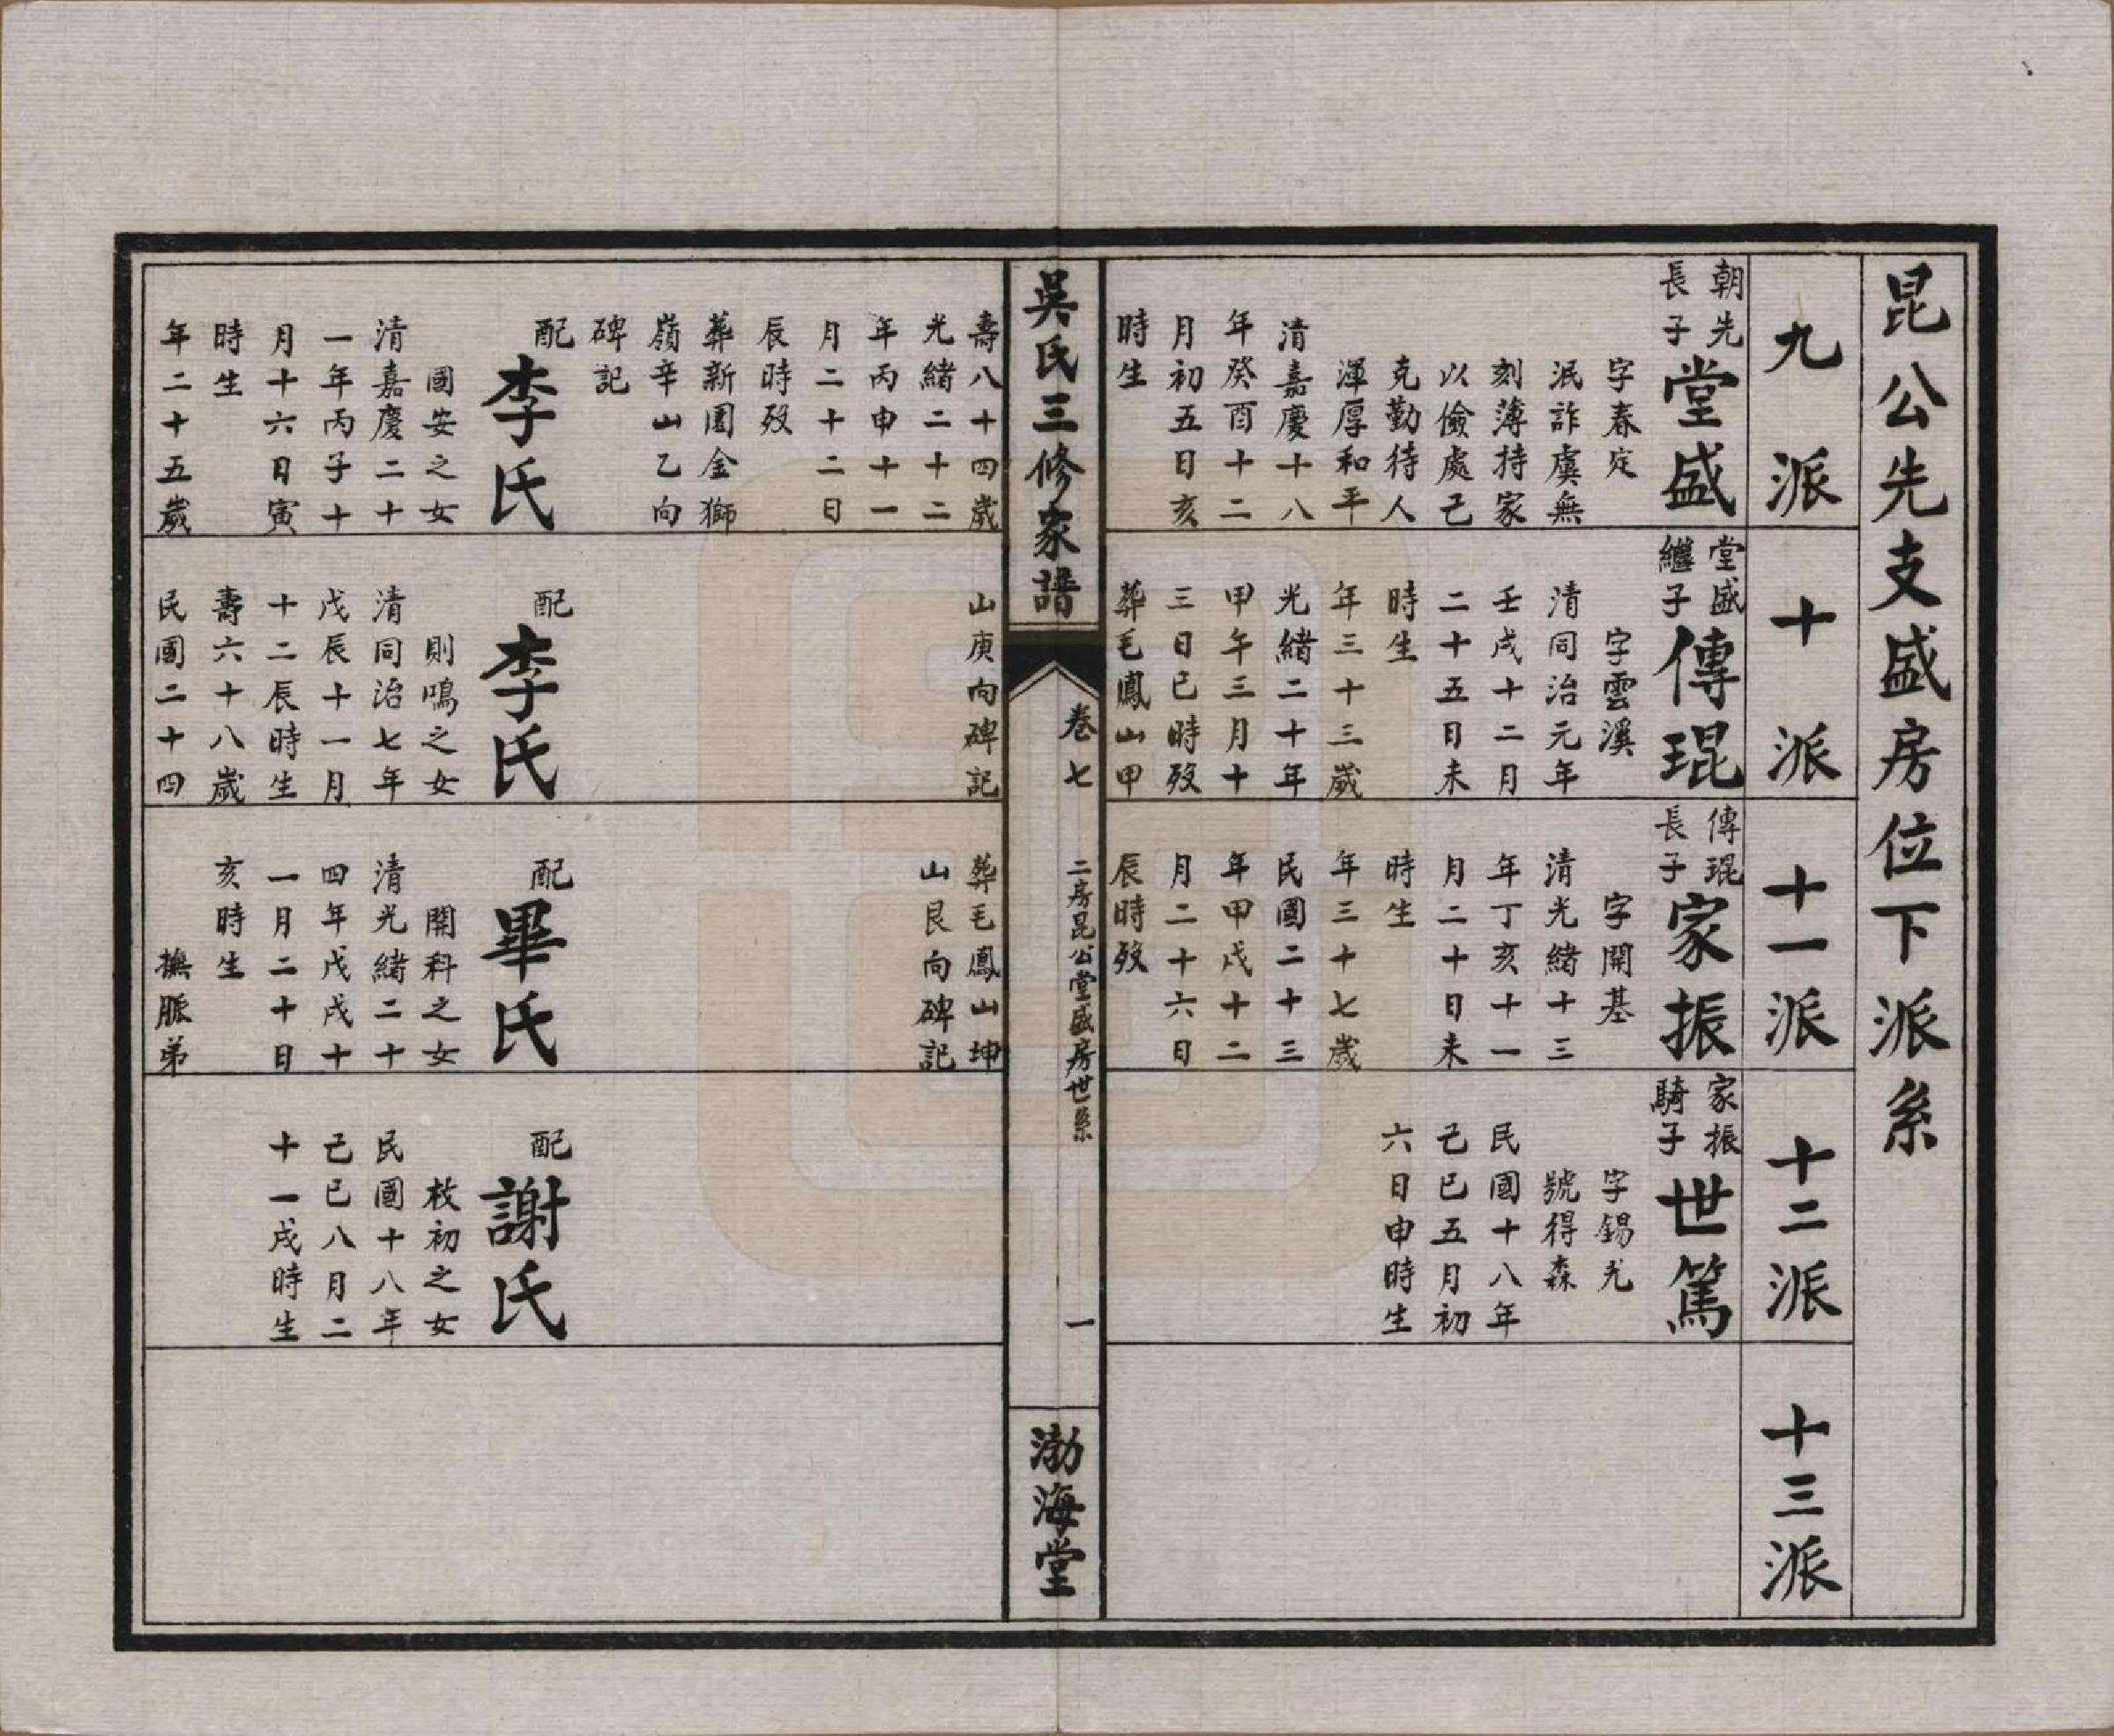 昆公先支盛房位下派系
九派
朝先
長子
堂盛
字春定
泯詐虞無
刻薄持家
以儉處己
克勤待人
渾厚和平
清嘉慶十八
年癸酉十二
月初五日亥
時生
十派
堂盛
繼子
傳琨
字雲溪
清同治元年
壬戌十二月
二十五日未
時生
年三十三歲
光緒二十年
甲午三月十
三日巳時歿
葬毛鳳山甲
十一派
傳琨
長子
家振
字開基
清光緒十三
年丁亥十一
月二十日未
時生
年三十七歲
民國二十三
年甲戌十二
月二十六日
辰時歿
十二派
家振
騎子
世篤
字錫光
號得森
民國十八年
己巳五月初
六日申時生
十三派
吳氏三修家譜
卷七
二房昆公堂盛房世系
一
渤海堂
壽八十四歲
光緒二十二
年丙申十一
月二十二日
辰時歿
葬新園金獅
嶺辛山乙向
碑記
配
李氏
國安之女
清嘉慶二十
一年丙子十
月十六日寅
時生
年二十五歲
山庚向碑記
配
李氏
則鳴之女
清同治七年
戊辰十一月
十二辰時生
壽六十八歲
民國二十四
葬毛鳳山坤
山艮向碑記
配
畢氏
開科之女
清光緒二十
四年戊戌十
一月二十日
亥時生
撫胍弟
配
謝氏
枚初之女
民國十八年
己巳八月二
十一戌時生